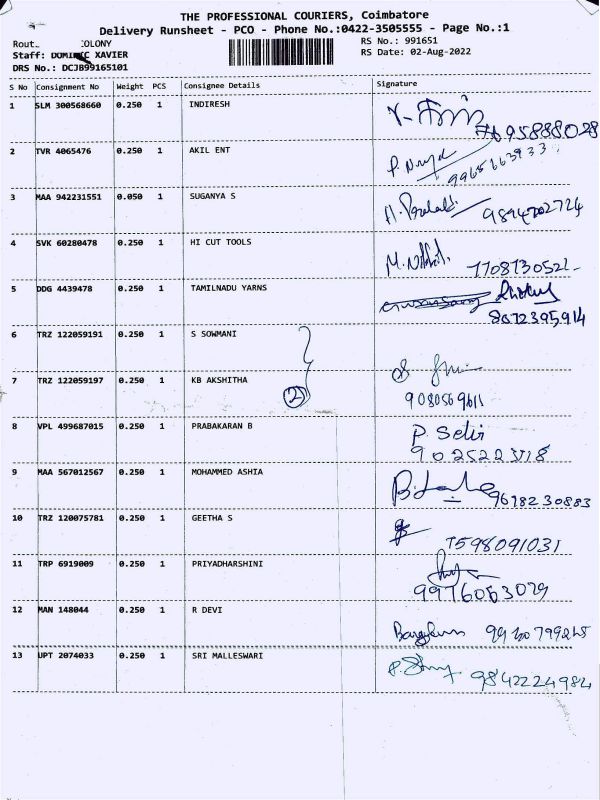 THE PROFESSIONAL COURIERS, Coimbatore
Delivery Runsheet - PCO - Phone No.:0422-3505555 - Page No.:1
RS No.: 991651
RS Date: 02-Aug-2022
Staff: DOMINIC XAVIER
DRS No.: DCJB99165101
S No Consignment No Weight PCS Consignee Details Signature
1 SLM 300568660 0.250 1 INDIRESH
2 TVR 4065476 0.250 1 AKIL ENT
9965663933
3 MAA 942231551 0.050 1 SUGANYA S
9894702724
4 SVK 60280478 0.250 1 HI CUT TOOLS
7708730521
5 DDG 4439478 0.250 1 TAMILNADU YARNS
8072395914
6 TRZ 122059191 0.250 1 S SOWMANI
7 TRZ 122059197 0.250 1 KB AKSHITHA
2
9080569611
8 VPL 499687015 0.250 1 PRABAKARAN B
P. Selvi
9 MAA 567012567 0.250 1 MOHAMMED ASHIA
9618230883
10 TRZ 120075781 0.250 1 GEETHA S
7598091031
11 TRP 6919009 0.250 1 PRIYADHARSHINI
9976053079
12 MAN 148044 0.250 1 R DEVI
13 UPT 2074033 0.250 1 SRI MALLESWARI
9842224984